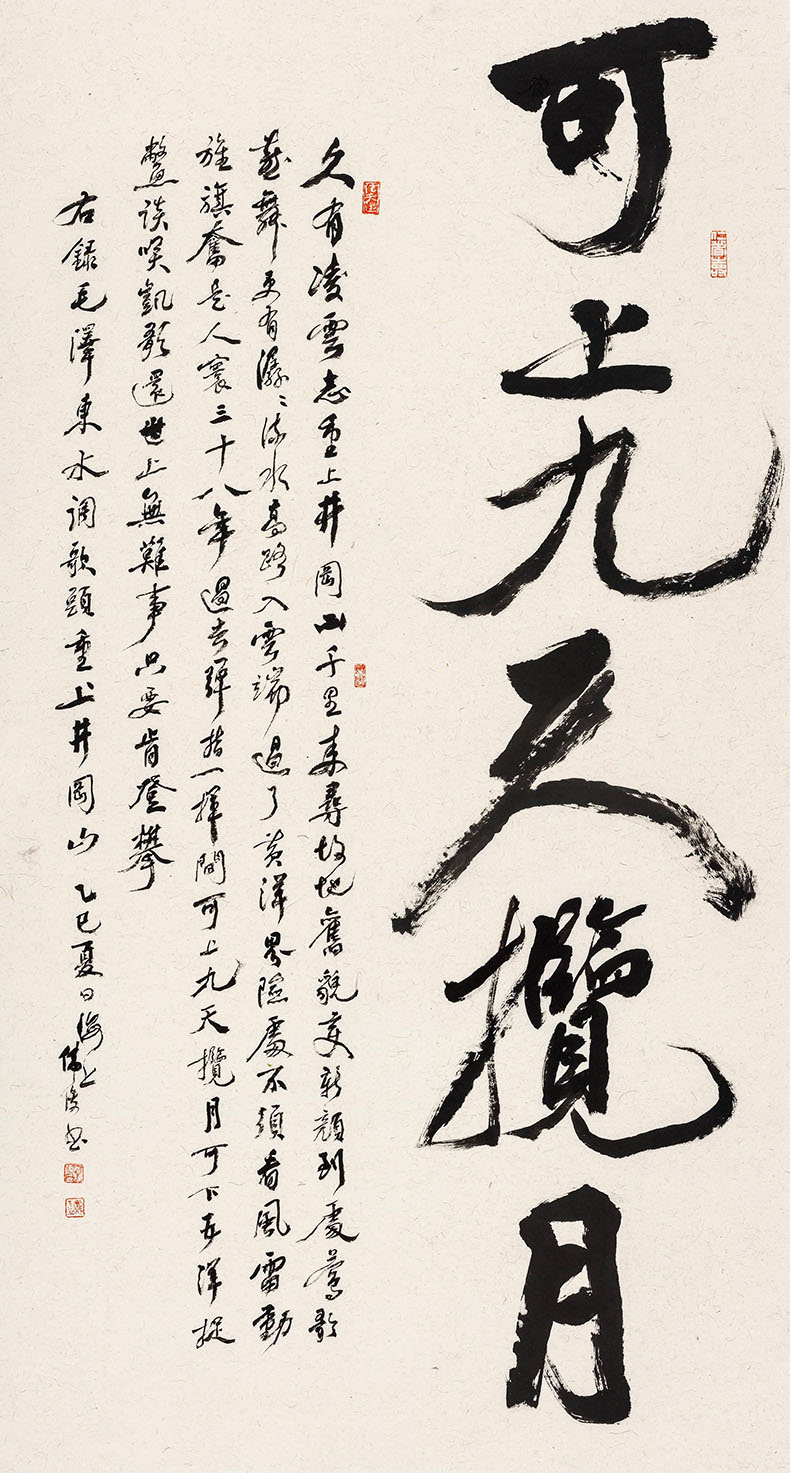 可上九天攬月
久有凌雲志重上井岡山千里来尋故地舊貌变新顔到處鶯歌
燕舞更有潺〻流水高路入雲端過了黄洋界險處不須看風雷動
旌旗奮是人寰三十八年過去彈指一揮間可上九天攬月可下五洋捉
鱉談笑凱歌還世上無難事只要肯登攀
右録毛澤東水调歌頭重上井岡山 乙巳夏日海上书